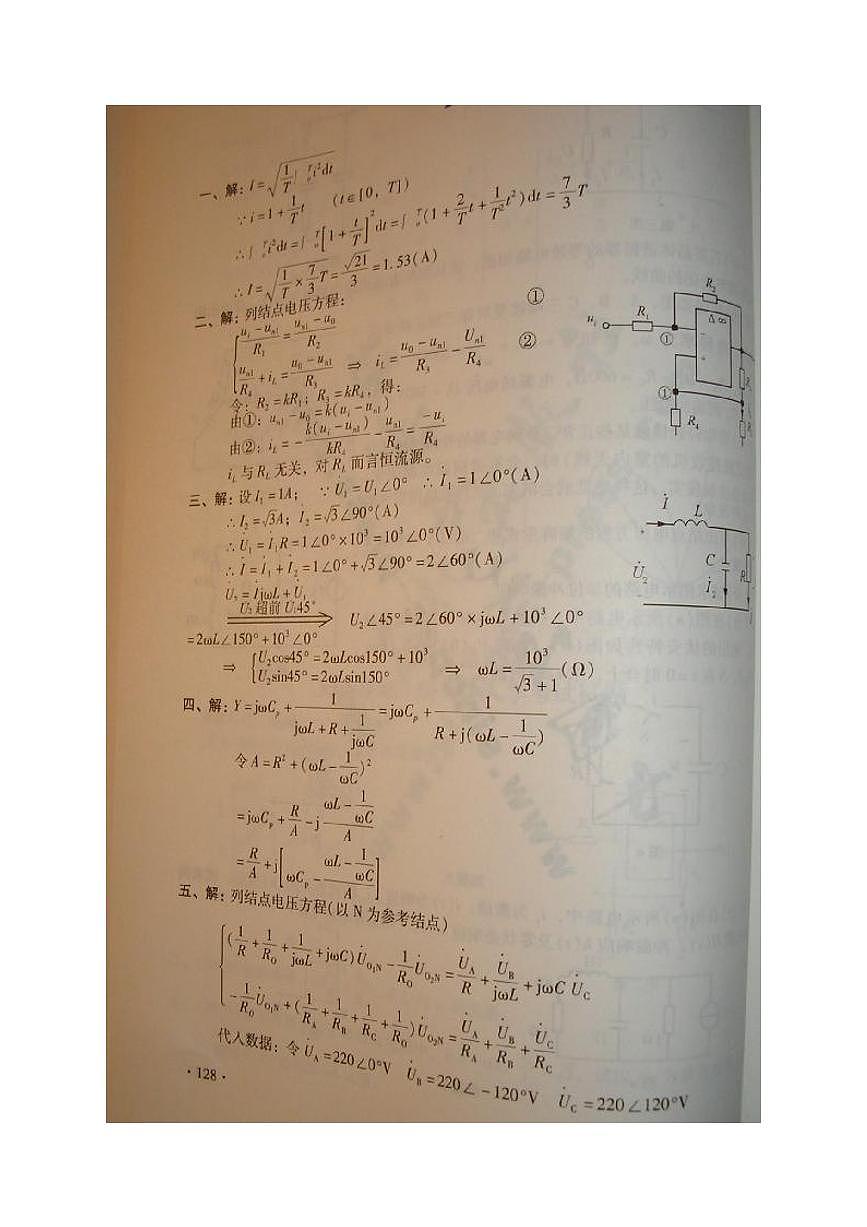 一、解：I=√(1/T ∫₀ᵀ i²dt)
∵i=1+1/T t (t∈[0，T])
∴∫₀ᵀ i²dt=∫₀ᵀ [1+t/T]² dt=∫₀ᵀ (1+2/T t+1/T² t²)dt=7/3 T
∴I=√(1/T×7/3 T)=√21/3=1.53(A)
二、解：列结点电压方程：
(uᵢ-uₙ₁)/R₁=(uₙ₁-u₀)/R₂ ①
uₙ₁/R₄+i_L=(u₀-uₙ₁)/R₃ ⇒ i_L=(u₀-uₙ₁)/R₃-Uₙ₁/R₄ ②
令：R₂=kR₁；R₃=kR₄，得：
由①：uₙ₁-u₀=k(uᵢ-uₙ₁)
由②：i_L=-k(uᵢ-uₙ₁)/kR₄-uₙ₁/R₄=-uᵢ/R₄
i_L与R_L无关，对R_L而言恒流源。
uᵢ R₁ R₂ Δ∞ + ① ① R₄
三、解：设I₁=1A；∵U̇₁=U₁∠0° ∴İ₁=1∠0°(A)
∴I₂=√3A；İ₂=√3∠90°(A)
∴U̇₁=İ₁R=1∠0°×10³=10³∠0°(V)
∴İ=İ₁+İ₂=1∠0°+√3∠90°=2∠60°(A)
U̇₂=İjωL+U̇₁
U̇₂超前U̇₁45° ⇒ U₂∠45°=2∠60°×jωL+10³∠0°
=2ωL∠150°+10³∠0°
⇒ U₂cos45°=2ωLcos150°+10³
U₂sin45°=2ωLsin150° ⇒ ωL=10³/(√3+1)(Ω)
İ L U̇₂ C İ₂ R
四、解：Y=jωCₚ+1/(jωL+R+1/jωC)=jωCₚ+1/(R+j(ωL-1/ωC))
令A=R²+(ωL-1/ωC)²
=jωCₚ+R/A-j(ωL-1/ωC)/A
=R/A+j[ωCₚ-(ωL-1/ωC)/A]
五、解：列结点电压方程(以N为参考结点)
(1/R+1/R₀+1/jωL+jωC)U̇_O₁N-1/R₀ U̇_O₂N=U̇_A/R+U̇_B/jωL+jωC U̇_C
-1/R₀ U̇_O₁N+(1/R_A+1/R_B+1/R_C+1/R₀)U̇_O₂N=U̇_A/R_A+U̇_B/R_B+U̇_C/R_C
代入数据：令U̇_A=220∠0°V U̇_B=220∠-120°V U̇_C=220∠120°V
·128·